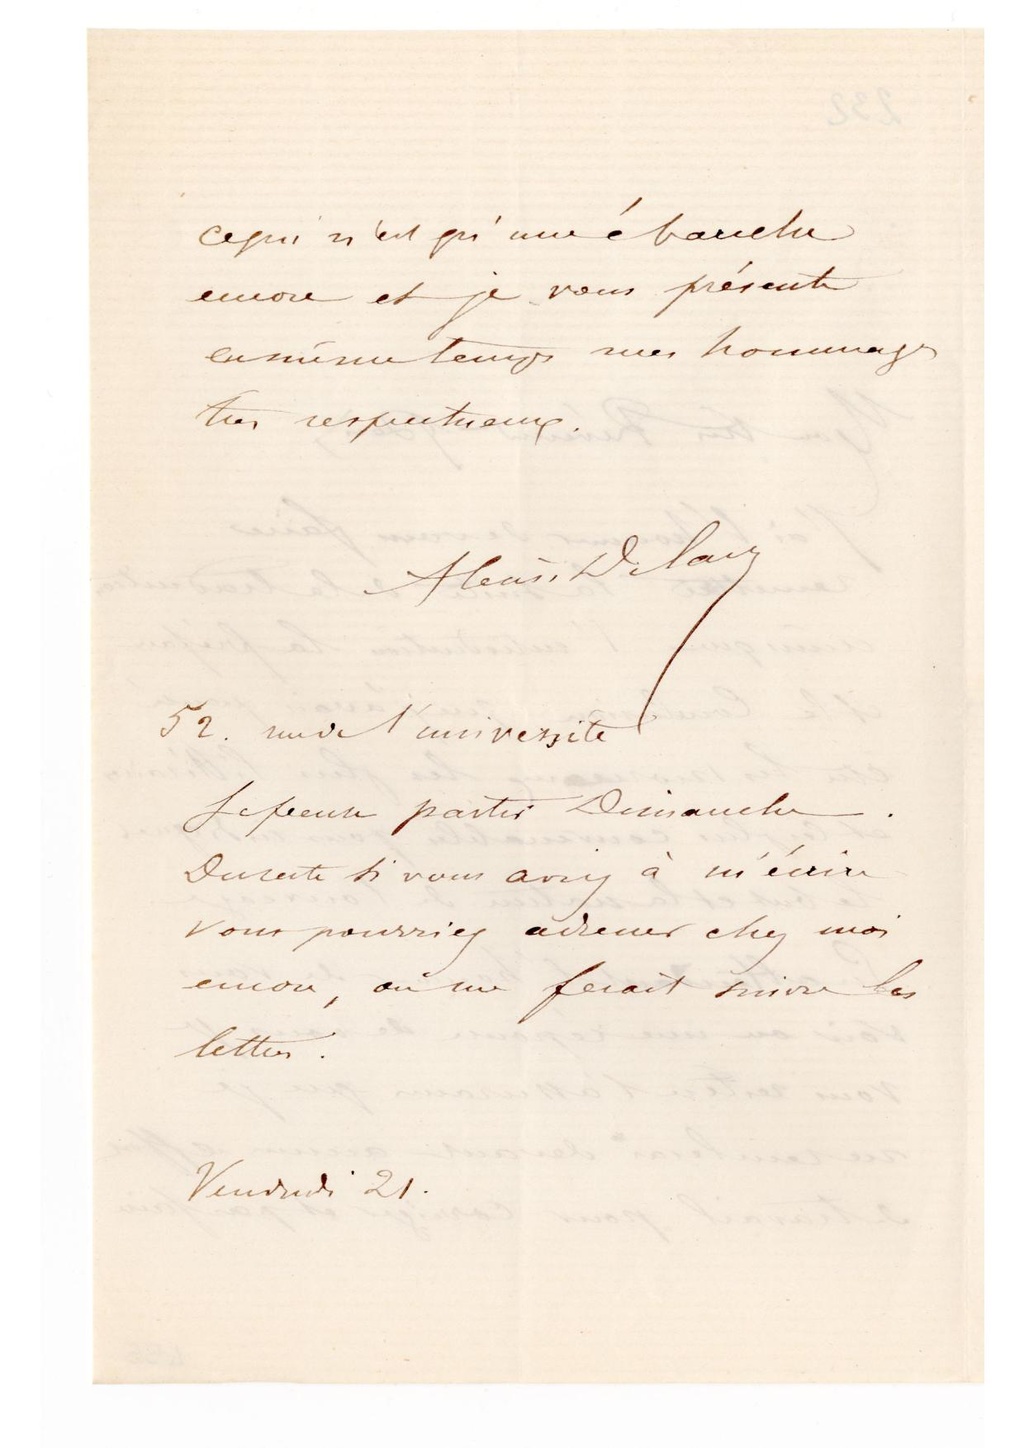 ce qui n'est qu'une ébauche
encore et je vous présente
en même temps mes hommages
très respectueux.
Alexis
52. rue de l'université
Je pense partir Dimanche.
Du reste si vous aviez à m'écrire
vous pourriez adresser chez moi
encore, on me ferait suivre les
lettres.
Vendredi 21.